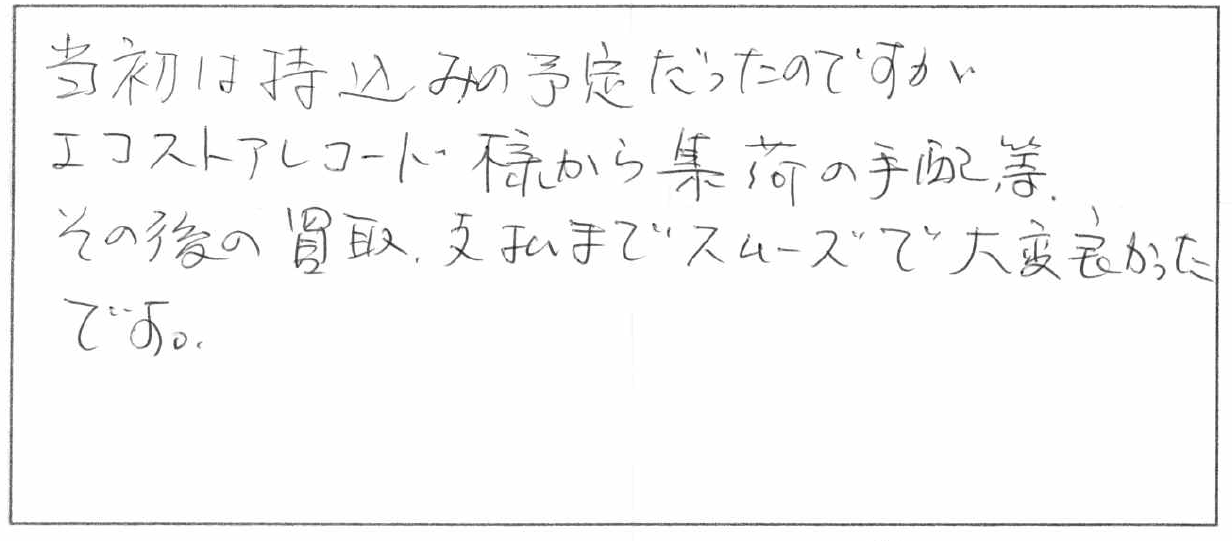 当初は持込みの予定だったのですが
エコストアレコード様から集荷の手配等、
その後の買取、支払までスムーズで大変良かった
です。